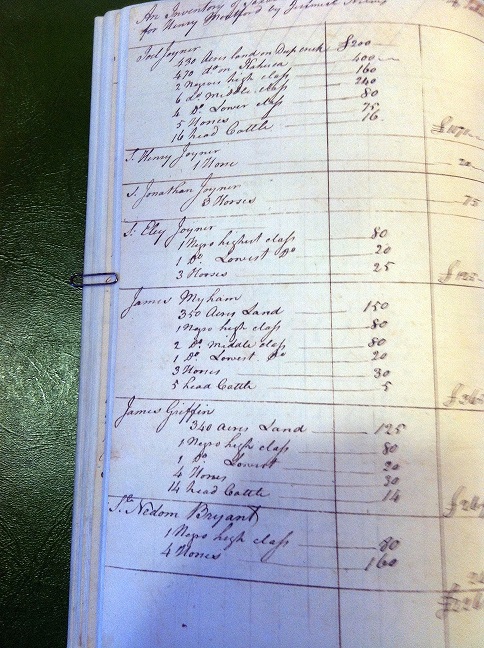 An Inventory of
for Henry by
Joel Joyner
430 Acres land on Deep creek £200
470 Do. on 400
2 Negroes high class 160
6 Do Middle class 240
4 Do. Lower class 80
5 Horses 75
16 head Cattle 16
S. Henry Joyner
1 Horse
S. Jonathan Joyner
3 Horses 75
S. Eley Joyner
1 Negro highest class 80
1 Do. Lowest Do 20
3 Horses 25
James
350 Acres Land 150
1 Negro high class 80
2 Do. Middle class 80
1 Do. Lowest Do 20
3 Horses 30
5 head Cattle 5
James Griffin
340 Acres Land 125
1 Negro high class 80
1 Do. Lowest 20
4 Horses 30
14 head Cattle 14
Nedom Bryant
1 Negro high class 80
4 Horses 160